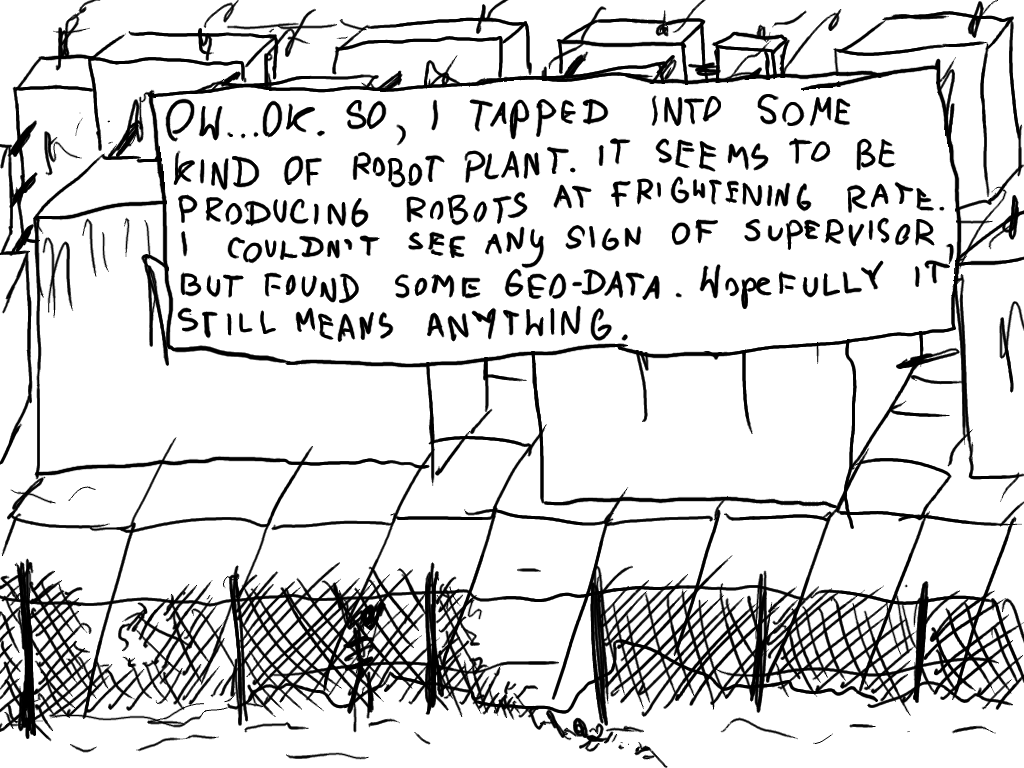 OW...OK. SO, I TAPPED INTO SOME
KIND OF ROBOT PLANT. IT SEEMS TO BE
PRODUCING ROBOTS AT FRIGHTENING RATE.
I COULDN'T SEE ANY SIGN OF SUPERVISOR,
BUT FOUND SOME GEO-DATA. HOPEFULLY IT
STILL MEANS ANYTHING.